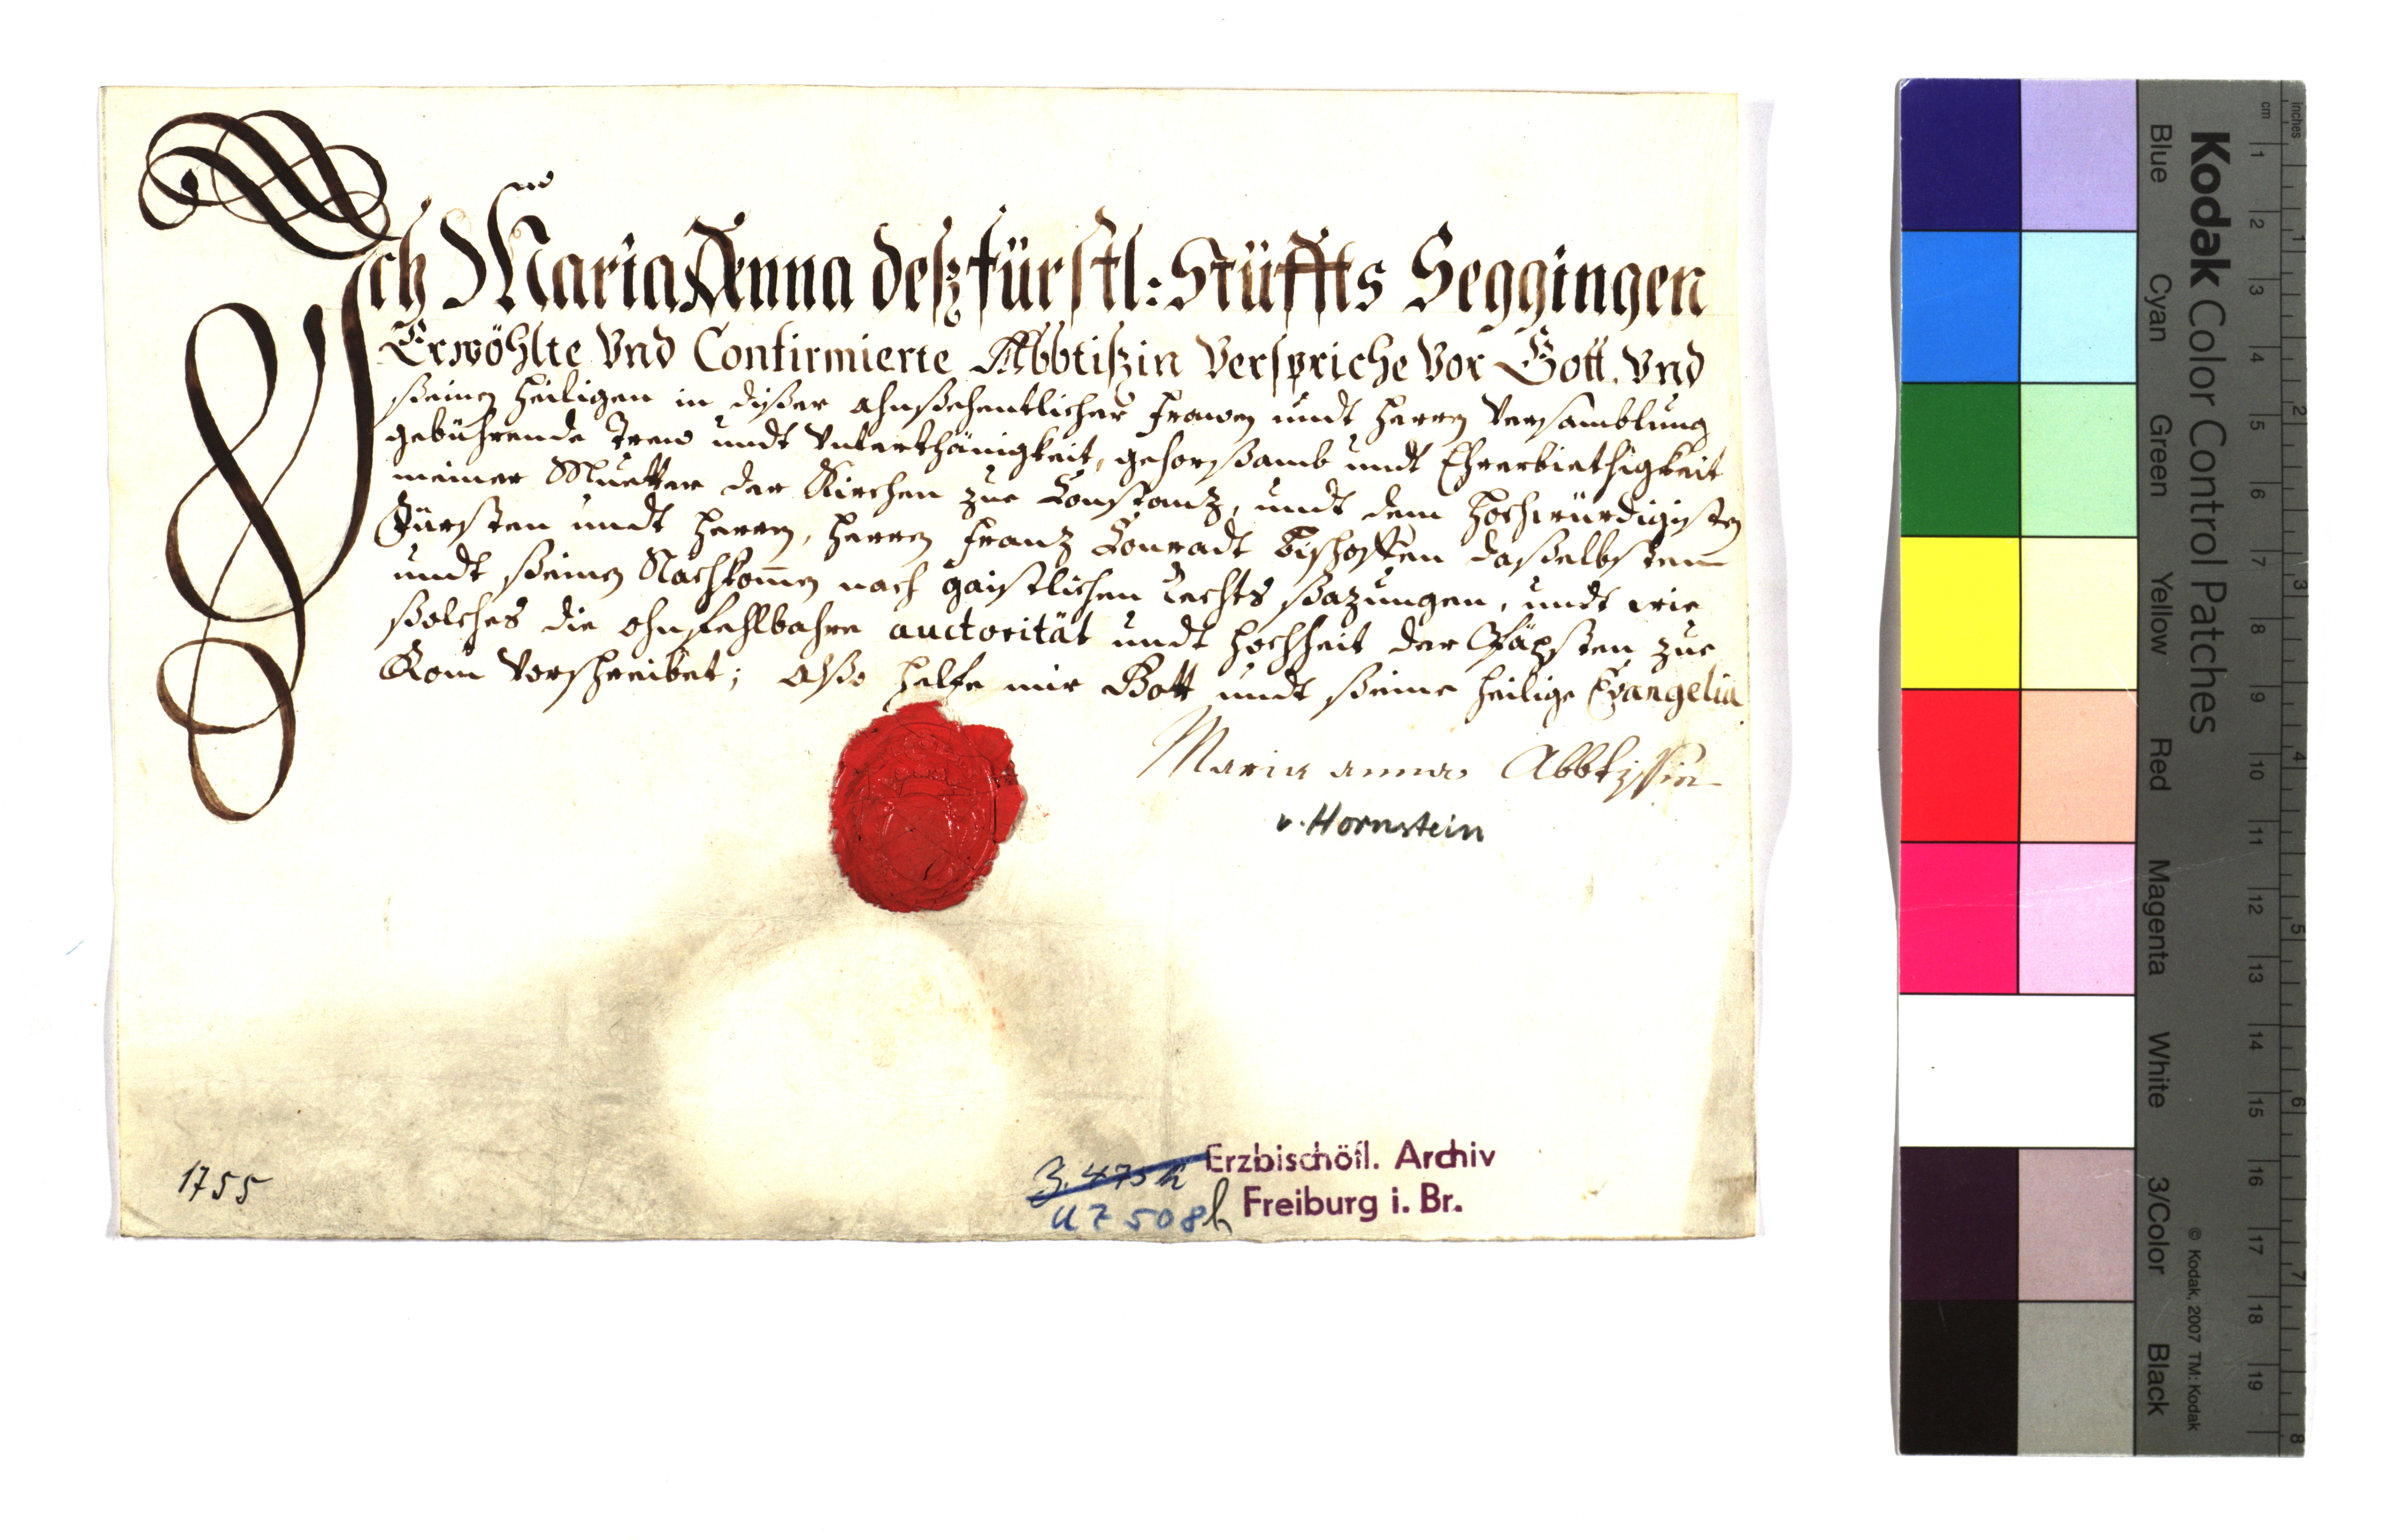 Ich Maria Anna deß fürstl: Stüffts Seggingen
Erwöhlte Vnd Confirmierte Abbtißin Verspriche Vor Gott. Vnd
ßeinen Heiligen in dißer ahnßehentlicher Frawen undt Herren Versamblung
gebührende Trew undt Vnterthänigkeit, gehorßamb undt Ehrerbiethigkeit
meiner Muetter der Kirchen zue Constanz, undt dem Hochwürdigisten
Fürsten undt Herren, Herren Franz Conradt Bischoffen daßelbsten
undt ßeinen Nachkom̅en nach gaistlichen Rechts ßazungen, undt wie
ßolches die ohnfehlbahre auctorität undt Hochheit der Päpsten zue
Rom Vorschreibet; alßo helfe mir Gott undt ßeine heilige Evangelia
Maria anna Abbtissin
v. Hornstein
1755
3. 475 h
U Z 508 h
Erzbischöfl. Archiv
Freiburg i. Br.
Kodak Color Control Patches
Blue Cyan Green Yellow Red Magenta White 3/Color Black
© Kodak, 2007 TM: Kodak
inches 1 2 3 4 5 6 7 8
cm 1 2 3 4 5 6 7 8 9 10 11 12 13 14 15 16 17 18 19